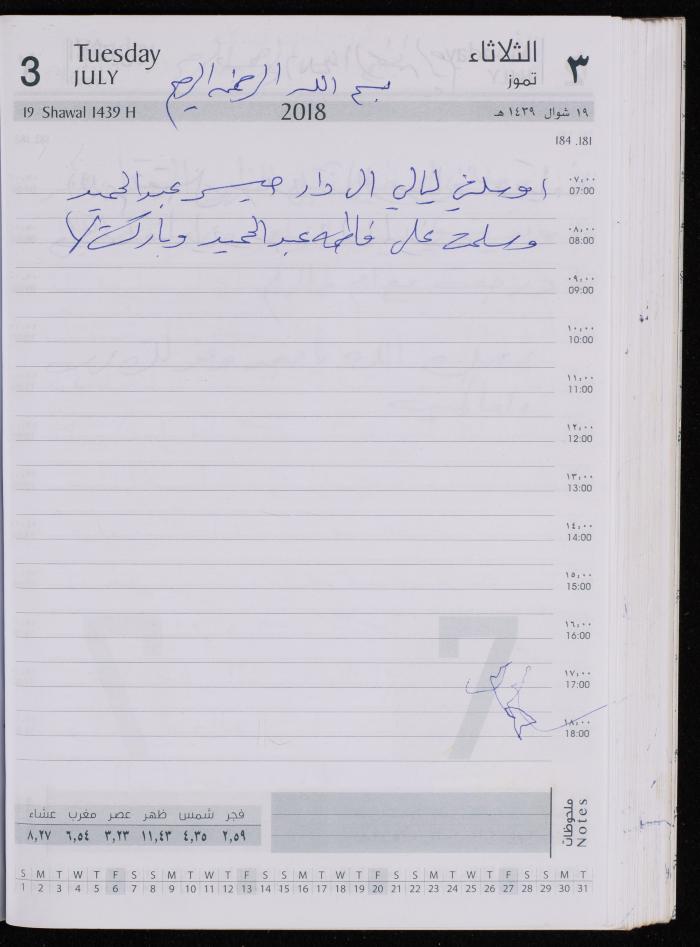 3 Tuesday JULY الثلاثاء تموز ٣
بسم الله الرحمن الرحيم
19 Shawal 1439 H 2018 ١٩ شوال ١٤٣٩ هـ
184 .181
ليالي ال دار عبدالحميد
٠٧,٠٠
07:00
وسلمت على فاطمه عبدالحميد وباركت لها
٠٨,٠٠
08:00
٠٩,٠٠
09:00
١٠,٠٠
10:00
١١,٠٠
11:00
١٢,٠٠
12:00
١٣,٠٠
13:00
١٤,٠٠
14:00
١٥,٠٠
15:00
١٦,٠٠
16:00
7
١٧,٠٠
17:00
١٨,٠٠
18:00
ملحوظات
Notes
فجر شمس ظهر عصر مغرب عشاء
٢,٥٩ ٤,٣٥ ١١,٤٣ ٣,٢٣ ٦,٥٤ ٨,٢٧
S M T W T F S S M T W T F S S M T W T F S S M T W T F S S M T
1 2 3 4 5 6 7 8 9 10 11 12 13 14 15 16 17 18 19 20 21 22 23 24 25 26 27 28 29 30 31